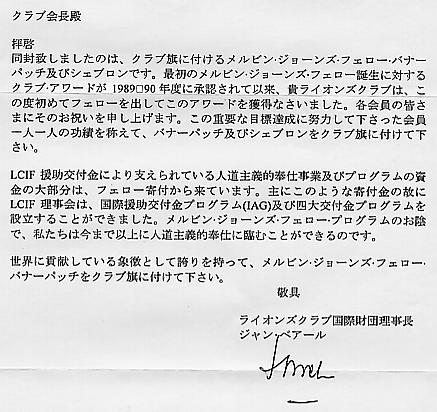 クラブ会長殿
拝啓
同封致しましたのは、クラブ旗に付けるメルビン・ジョーンズ・フェロー・バナー
パッチ及びシェブロンです。最初のメルビン・ジョーンズ・フェロー誕生に対する
クラブ・アワードが 1989□90 年度に承認されて以来、貴ライオンズクラブは、こ
の度初めてフェローを出してこのアワードを獲得なさいました。各会員の皆さ
まにそのお祝いを申し上げます。この重要な目標達成に努力して下さった会員
一人一人の功績を称えて、バナーパッチ及びシェブロンをクラブ旗に付けて下さ
い。
LCIF 援助交付金により支えられている人道主義的奉仕事業及びプログラムの資
金の大部分は、フェロー寄付から来ています。主にこのような寄付金の故に
LCIF 理事会は、国際援助交付金プログラム(IAG)及び四大交付金プログラムを
設立することができました。メルビン・ジョーンズ・フェロー・プログラムのお陰
で、私たちは今まで以上に人道主義的奉仕に臨むことができるのです。
世界に貢献している象徴として誇りを持って、メルビン・ジョーンズ・フェロー・
バナーパッチをクラブ旗に付けて下さい。
敬具
ライオンズクラブ国際財団理事長
ジャン・ベアール